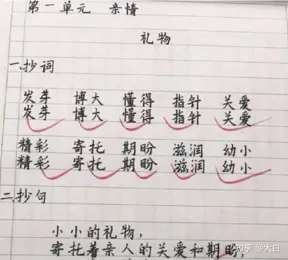 第一单元 亲情
礼物
一.抄词
发芽 博大 懂得 指针 关爱
发芽 博大 懂得 指针 关爱
精彩 寄托 期盼 滋润 幼小
精彩 寄托 期盼 滋润 幼小
二.抄句
小小的礼物,
寄托着亲人的关爱和期盼,
知乎 @大白